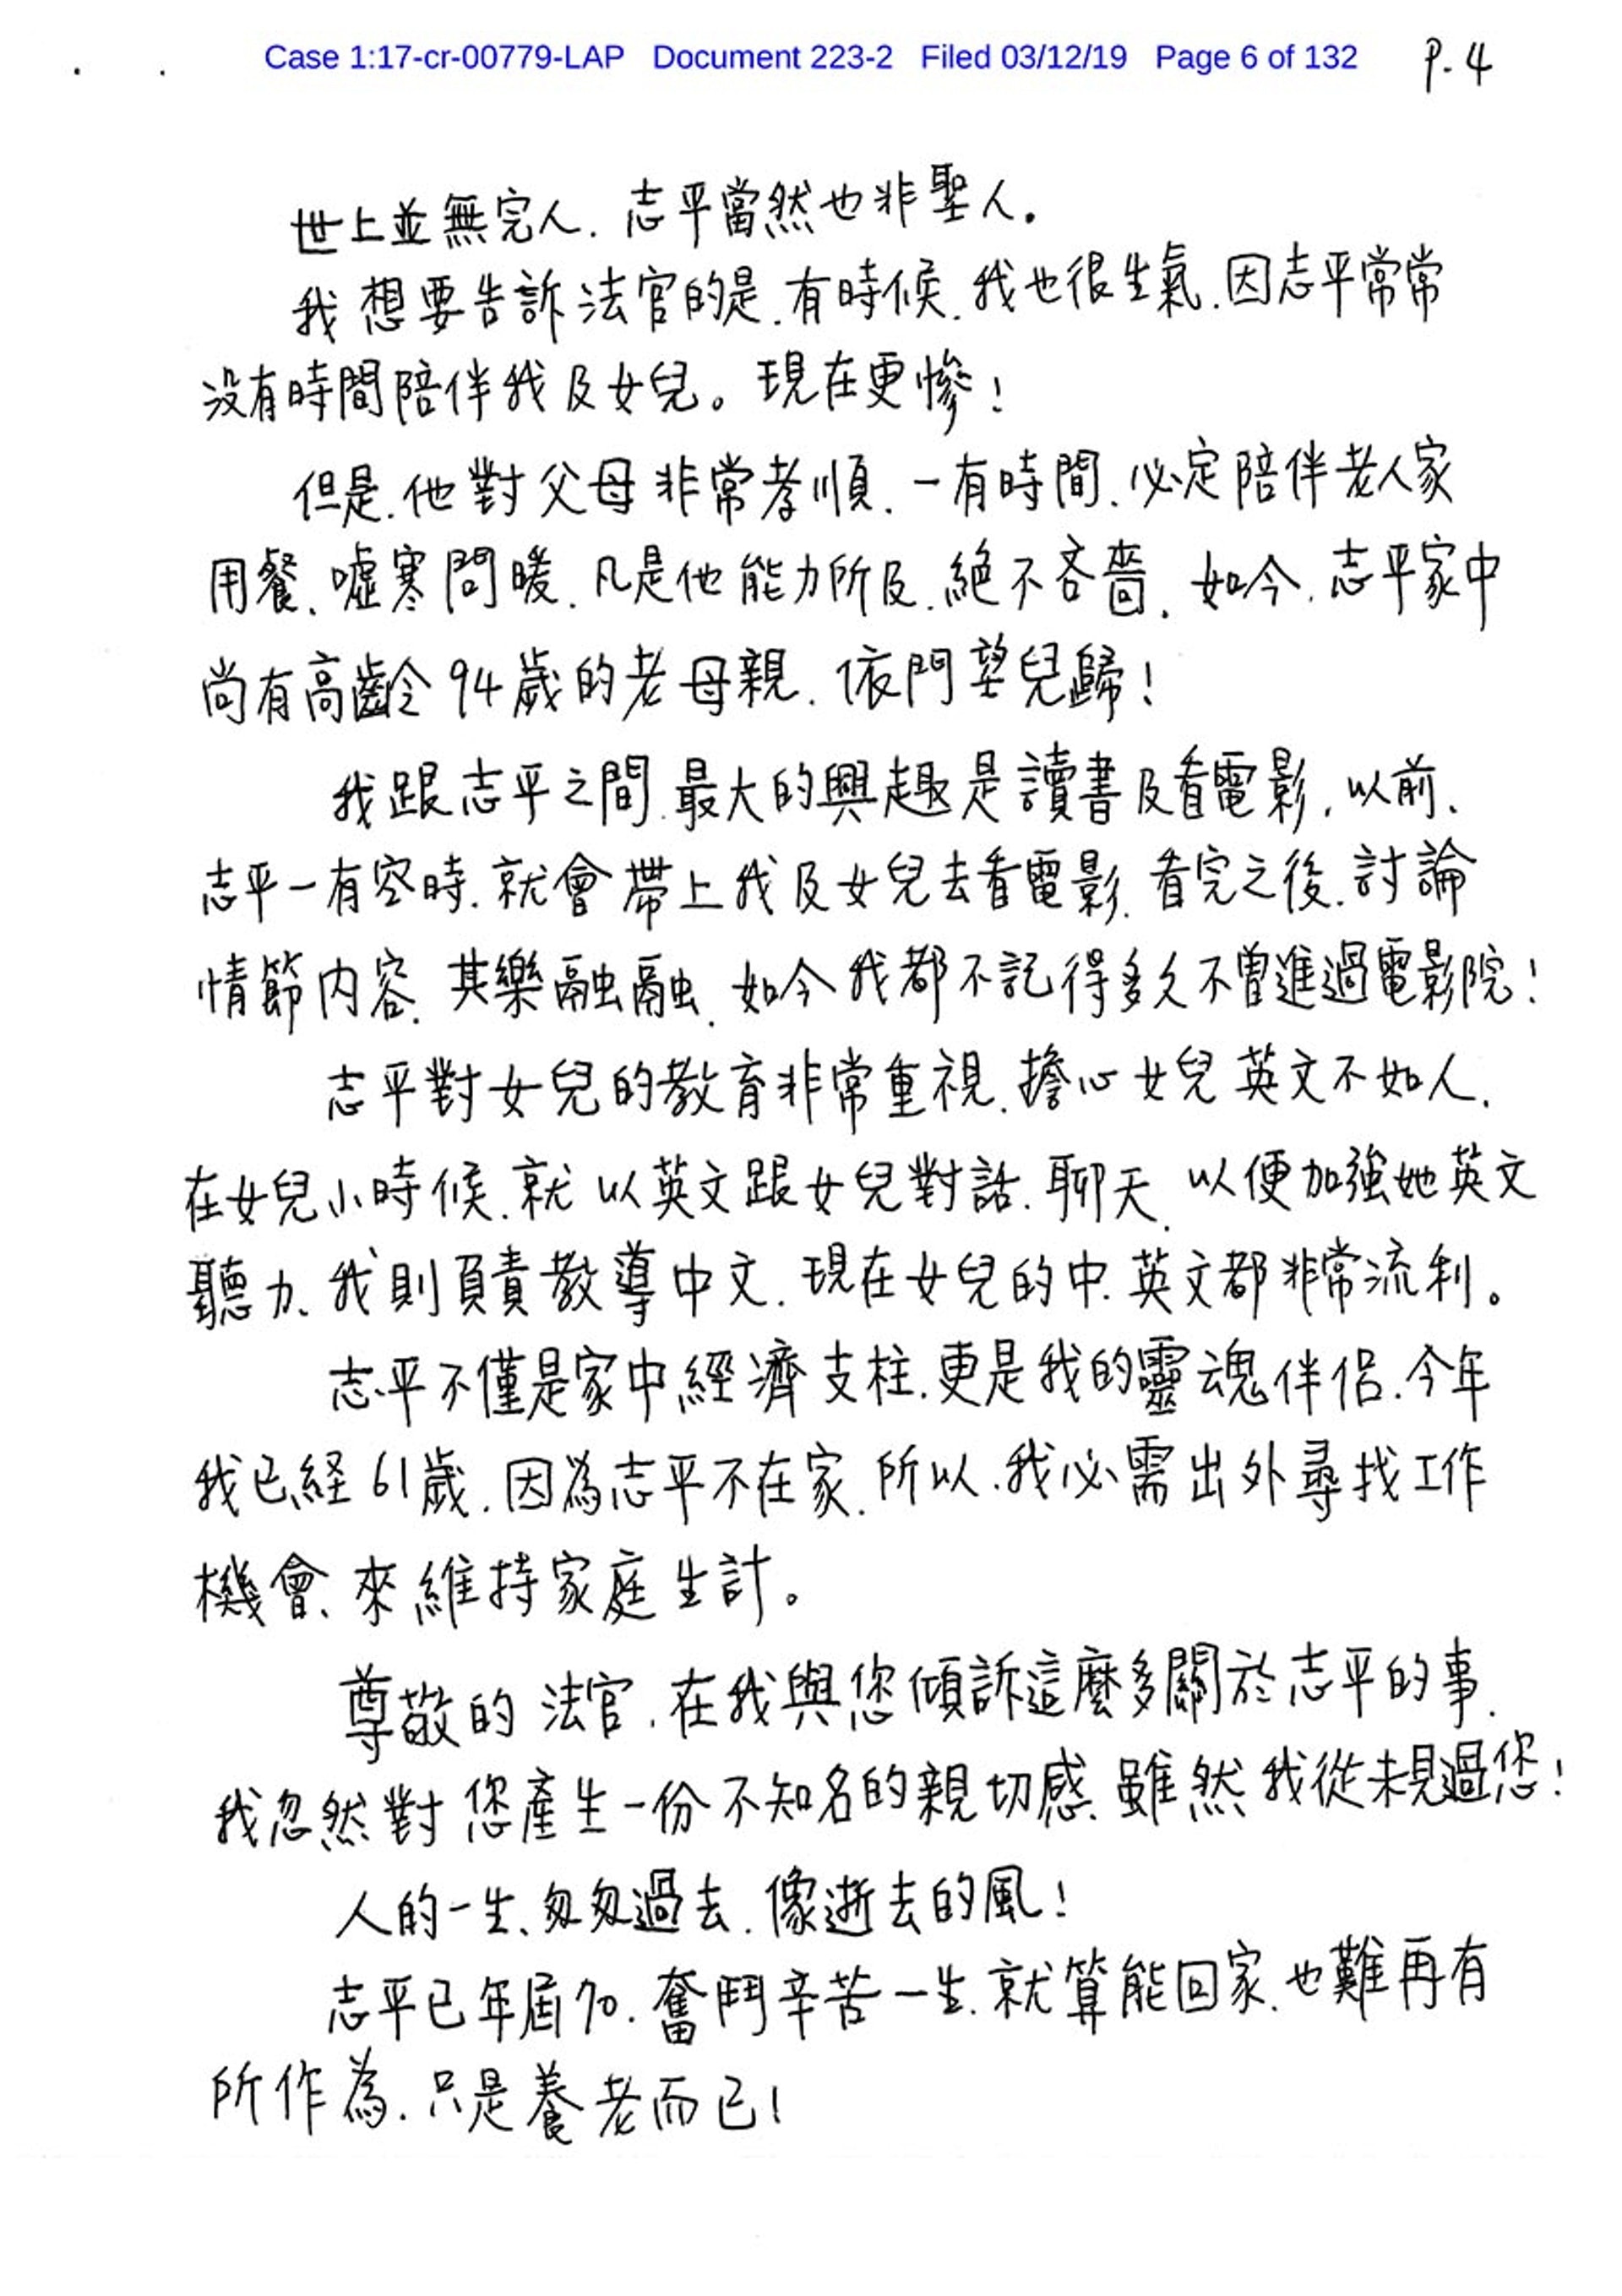 Case 1:17-cr-00779-LAP Document 223-2 Filed 03/12/19 Page 6 of 132
P. 4
世上並無完人. 志平當然也非聖人.
我想要告訴法官的是.有時候.我也很生氣.因志平常常
沒有時間陪伴我及女兒。現在更慘!
但是.他對父母非常孝順.一有時間.必定陪伴老人家
用餐.噓寒問暖.凡是他能力所及.絕不吝嗇.如今.志平家中
尚有高齡94歲的老母親.依門望兒歸!
我跟志平之間.最大的興趣是讀書及看電影.以前.
志平一有空時.就會帶上我及女兒去看電影.看完之後.討論
情節內容.其樂融融.如今我都不記得多久不曾進過電影院!
志平對女兒的教育非常重視.擔心女兒英文不如人.
在女兒小時候.就以英文跟女兒對話.聊天.以便加強她英文
聽力.我則負責教導中文.現在女兒的中.英文都非常流利。
志平不僅是家中經濟支柱.更是我的靈魂伴侶.今年
我已経61歲.因為志平不在家.所以.我必需出外尋找工作
機會.來維持家庭生計。
尊敬的法官.在我與您傾訴這麼多關於志平的事.
我忽然對您產生一份不知名的親切感.雖然我從未見過您!
人的一生.匆匆過去.像逝去的風!
志平已年屆70.奮鬥辛苦一生.就算能回家.也難再有
所作為.只是養老而已!